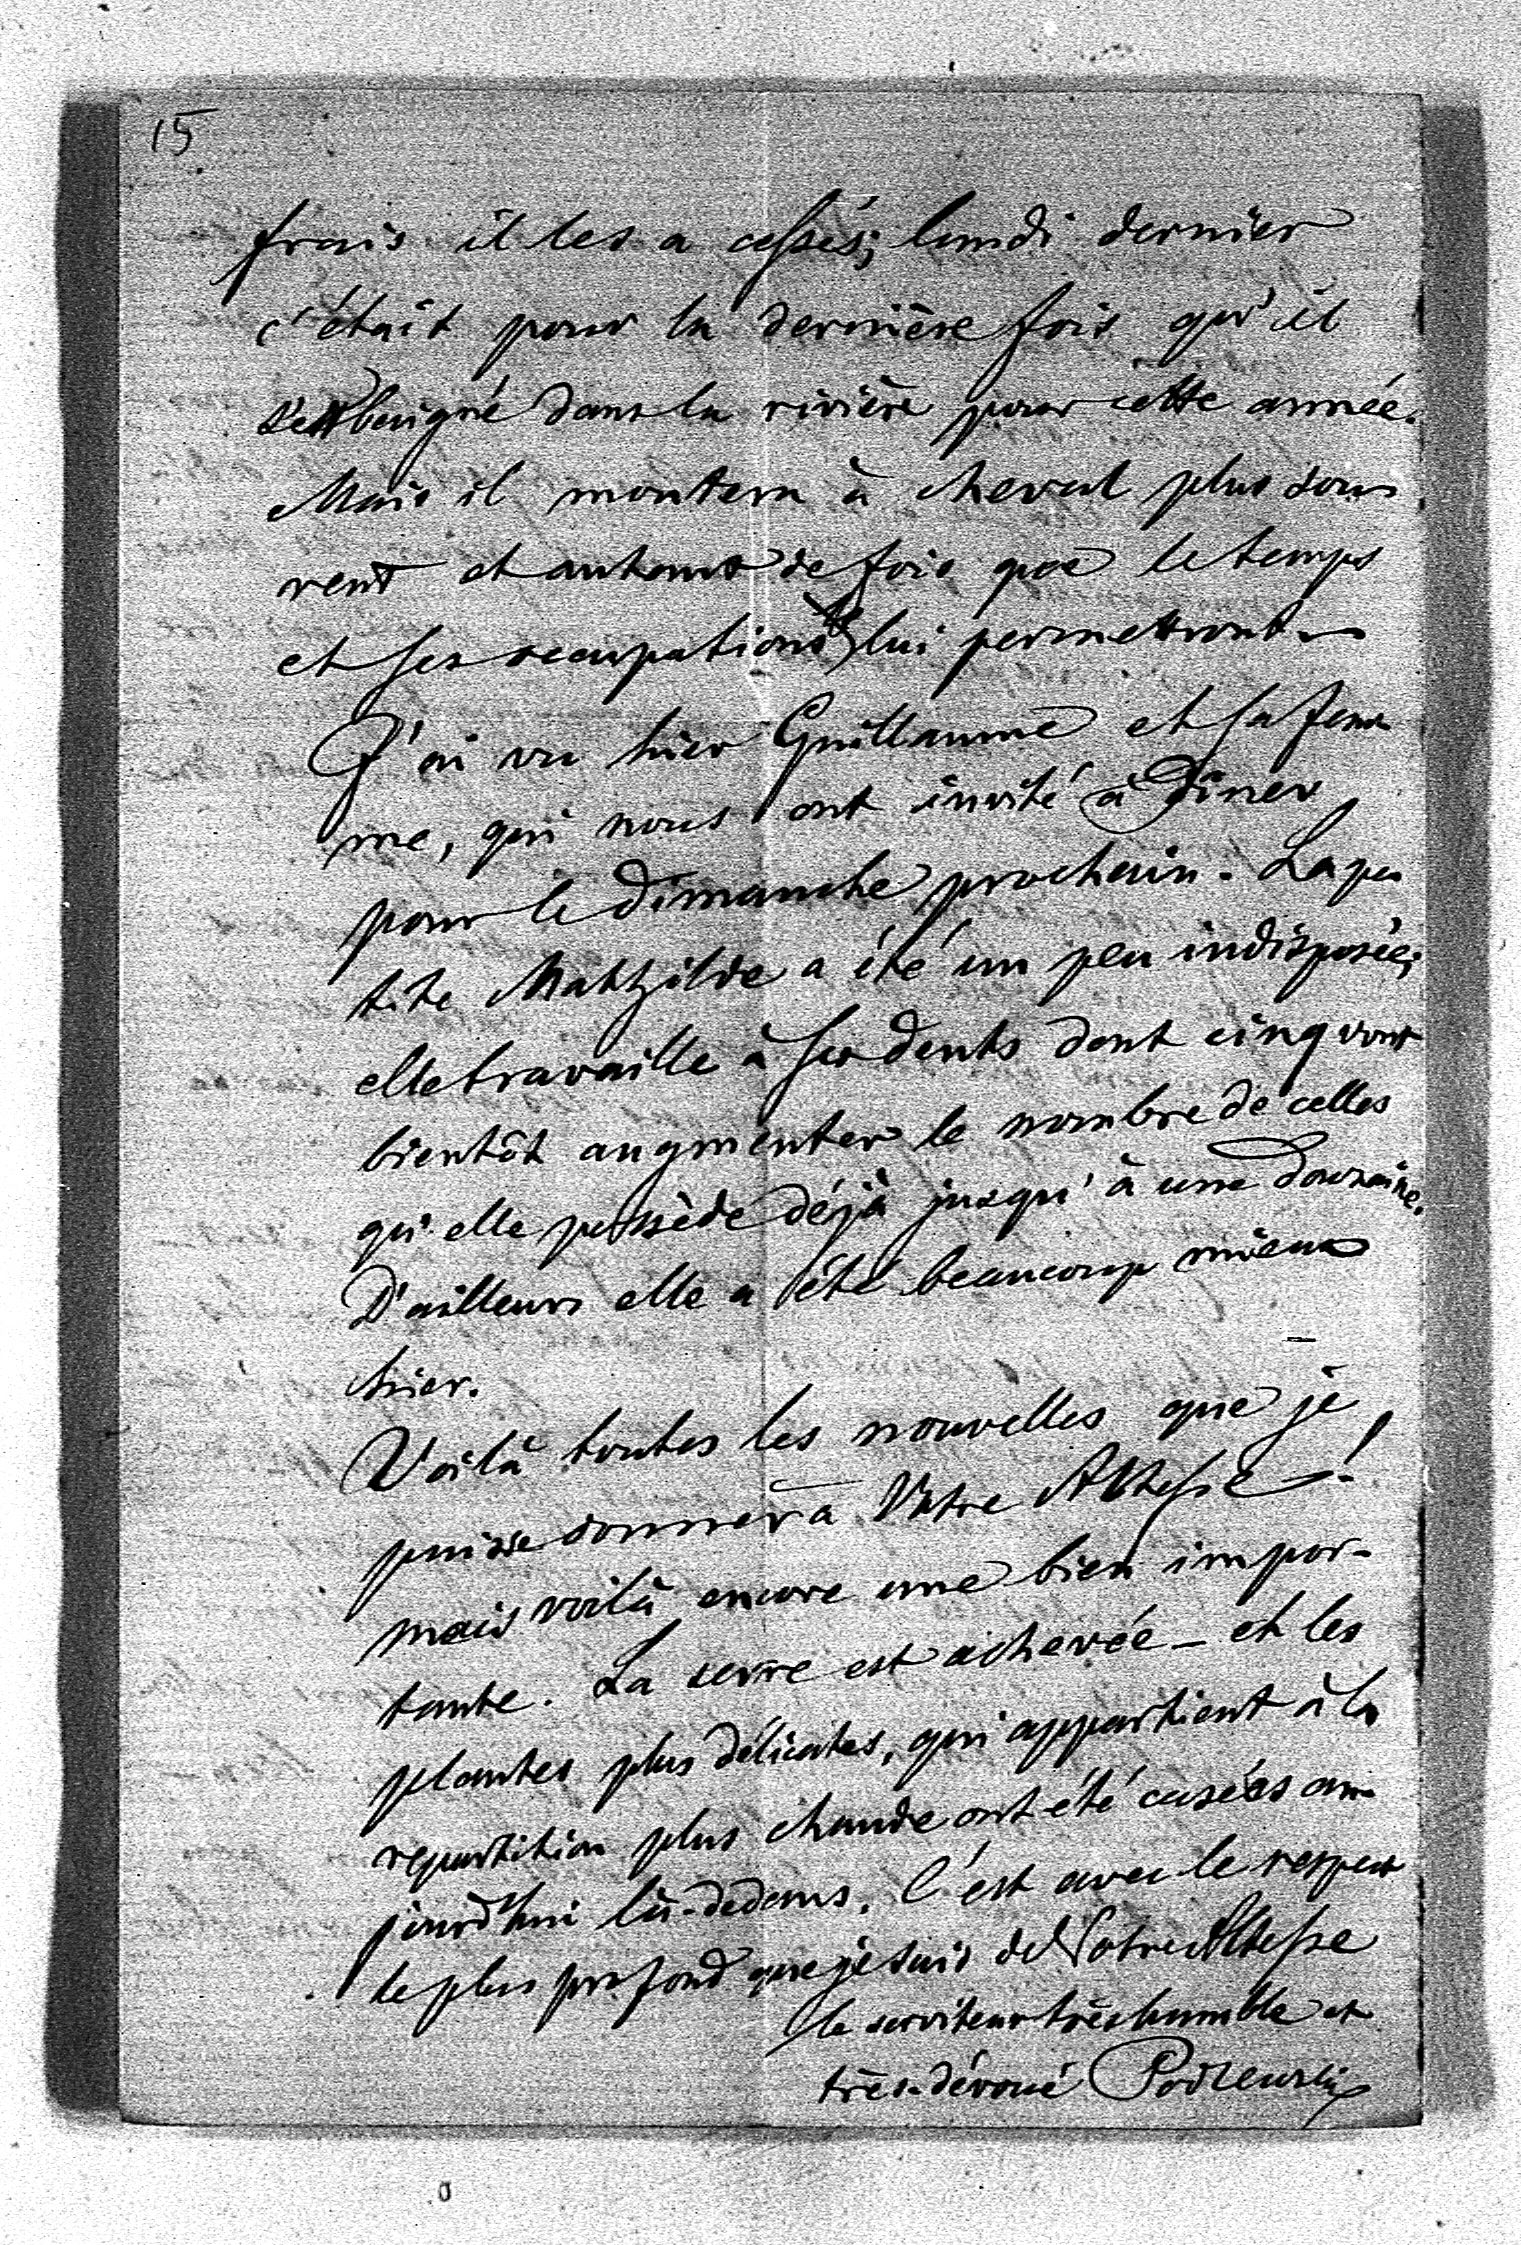 15
frais il les a cessés; lundi dernier
c'était pour la dernière fois qu'il
s'est baigné dans la rivière pour cette année.
Mais il montera à cheval plus sou-
vent et autant de fois que le temps
et ses occupations lui permettront
J'ai vu hier Guillaume et sa fem-
me, qui nous ont invité à diner
pour le dimanche prochain. La pe-
tite Mathilde a été un peu indisposée;
elle travaille à ses dents dont cinq vont
bientôt augmenter le nombre de celles
qu'elle possède déjà jusqu'à une douzaine.
D'ailleurs elle a été beaucoup mieux
hier.
Voilà toutes les nouvelles que je
puisse donner à Votre Altesse!
mais voilà encore une bien impor-
tante. La serre est achevée - et les
plantes plus délicates, qui appartient à la
repartition plus chaude ont été casées au-
jourd'hui là-dedans. C'est avec le respect
le plus profond que je suis de Votre Altesse
le serviteur très humble et
très-dévoué